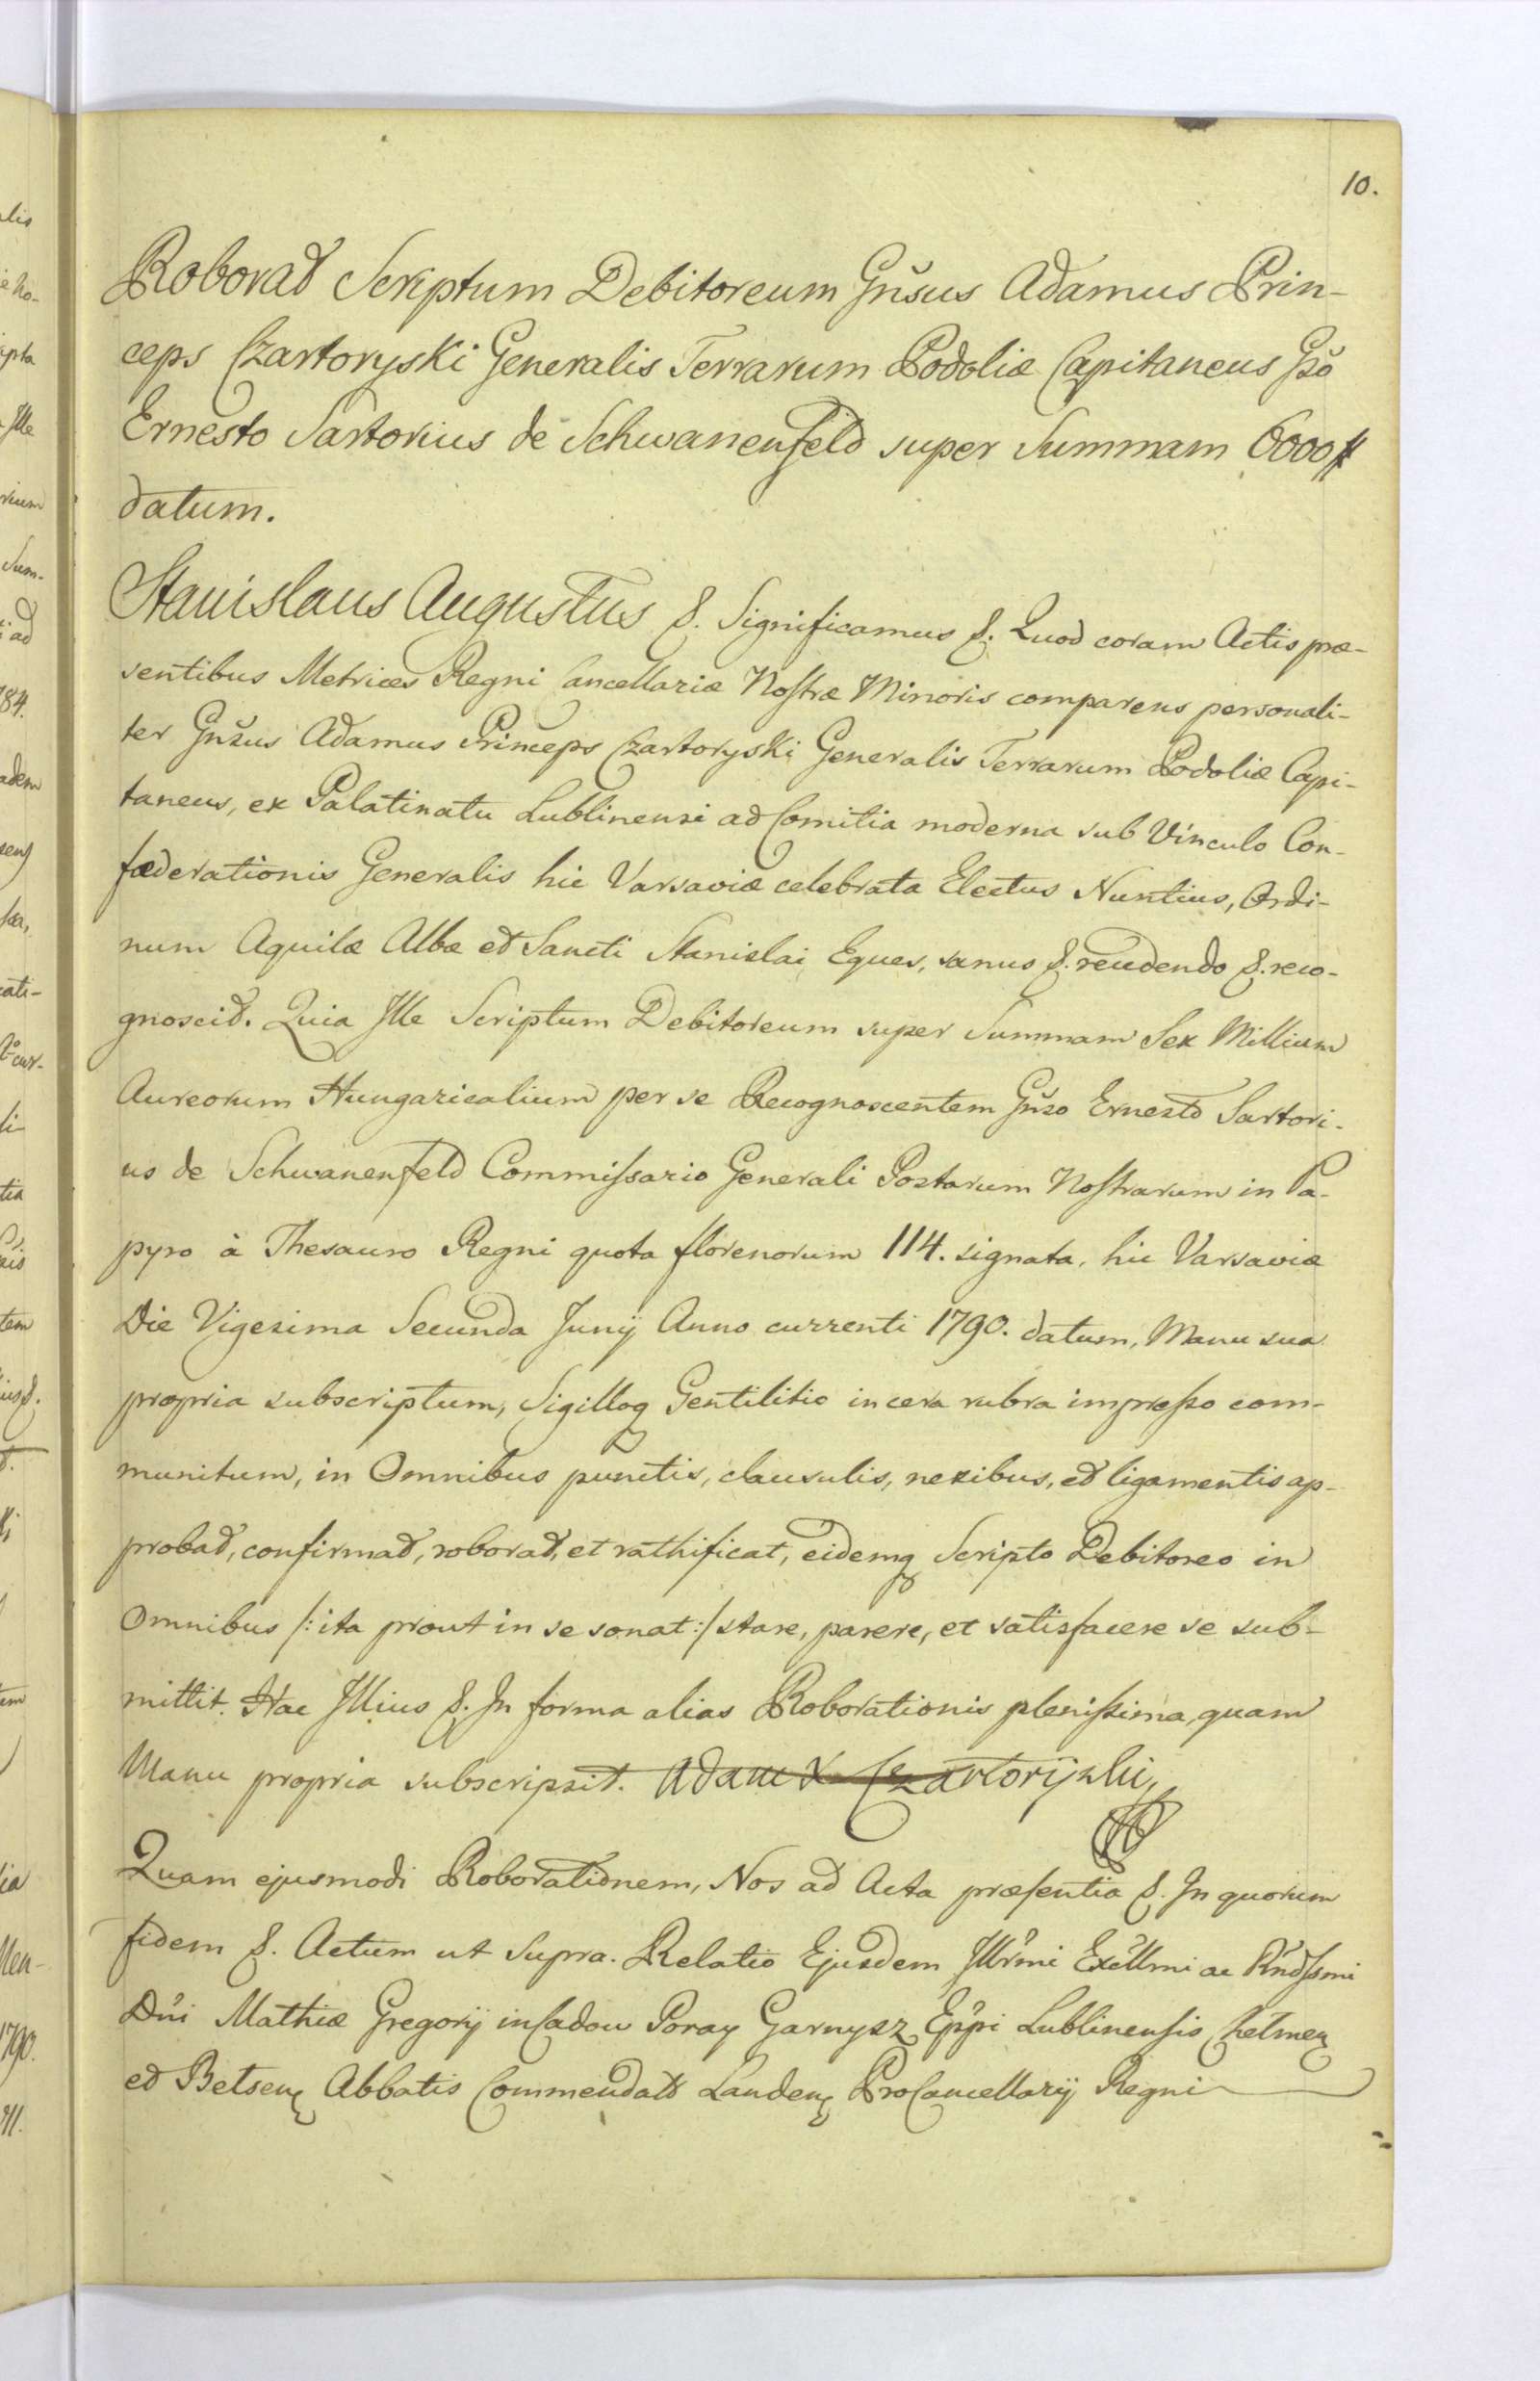 10.
Roborat Scriptum Debitoreum Gnsus Adamus Prin-
ceps Czartoryski Generalis Terrarum Podoliæ Capitaneus Gso
Ernesto Sartorius de Schwanenfeld super Summam 6000 #
datum.
Stanislaus Augustus &. Significamus &. Quod coram Actis præ-
sentibus Metrices Regni Cancellariæ Nostræ Minoris comparens personali-
ter Gnsus Adamus Princeps Czartoryski Generalis Terrarum Podoliæ Capi-
taneus, ex Palatinatu Lublinensi ad Comitia moderna sub Vinculo Con-
fæderationis Generalis hic Varsaviæ celebrata Electus Nuntius, Ordi-
num Aquilæ Albæ et Sancti Stanislai Eques, sanus &. reudendo &. reco-
gnoscit. Quia Ille Scriptum Debitoreum super Summam Sex Millium
Aureorum Hungaricalium per se Recognoscentem Gnso Ernesto Sartori-
us de Schwanenfeld Commissario Generali Postarum Nostrarum in Pa-
pyro à Thesauro Regni quota florenorum 114. signata, hic Varsaviæ
Die Vigesima Secunda Junij Anno currenti 1790. datum, Manu sua
propria subscriptum, Sigilloq Gentilitio in cera rubra impresso com-
munitum, in Omnibus punctis, clausulis, nexibus, et ligamentis ap-
probat, confirmat, roborat, et rathificat, eidemq Scripto Debitoreo in
Omnibus /: ita prout in se sonat :/ stare, parere, et satisfacere se sub-
mittit. Hac Illius &. In forma alias Roborationis plenissima, quam
Manu propria subscripsit. Adam X Czartoryski,
Quam ejusmodi Roborationem, Nos ad Acta præsentia &. In quorum
fidem &. Actum ut Supra. Relatio Ejusdem Illrmi Excllmi ac Rndssmi
Dni Mathiæ Gregorij in Cadow Poray Garnysz Eppi Lublinensis Chelmen
et Belsen Abbatis Commendat Landen ProCancellarij Regni